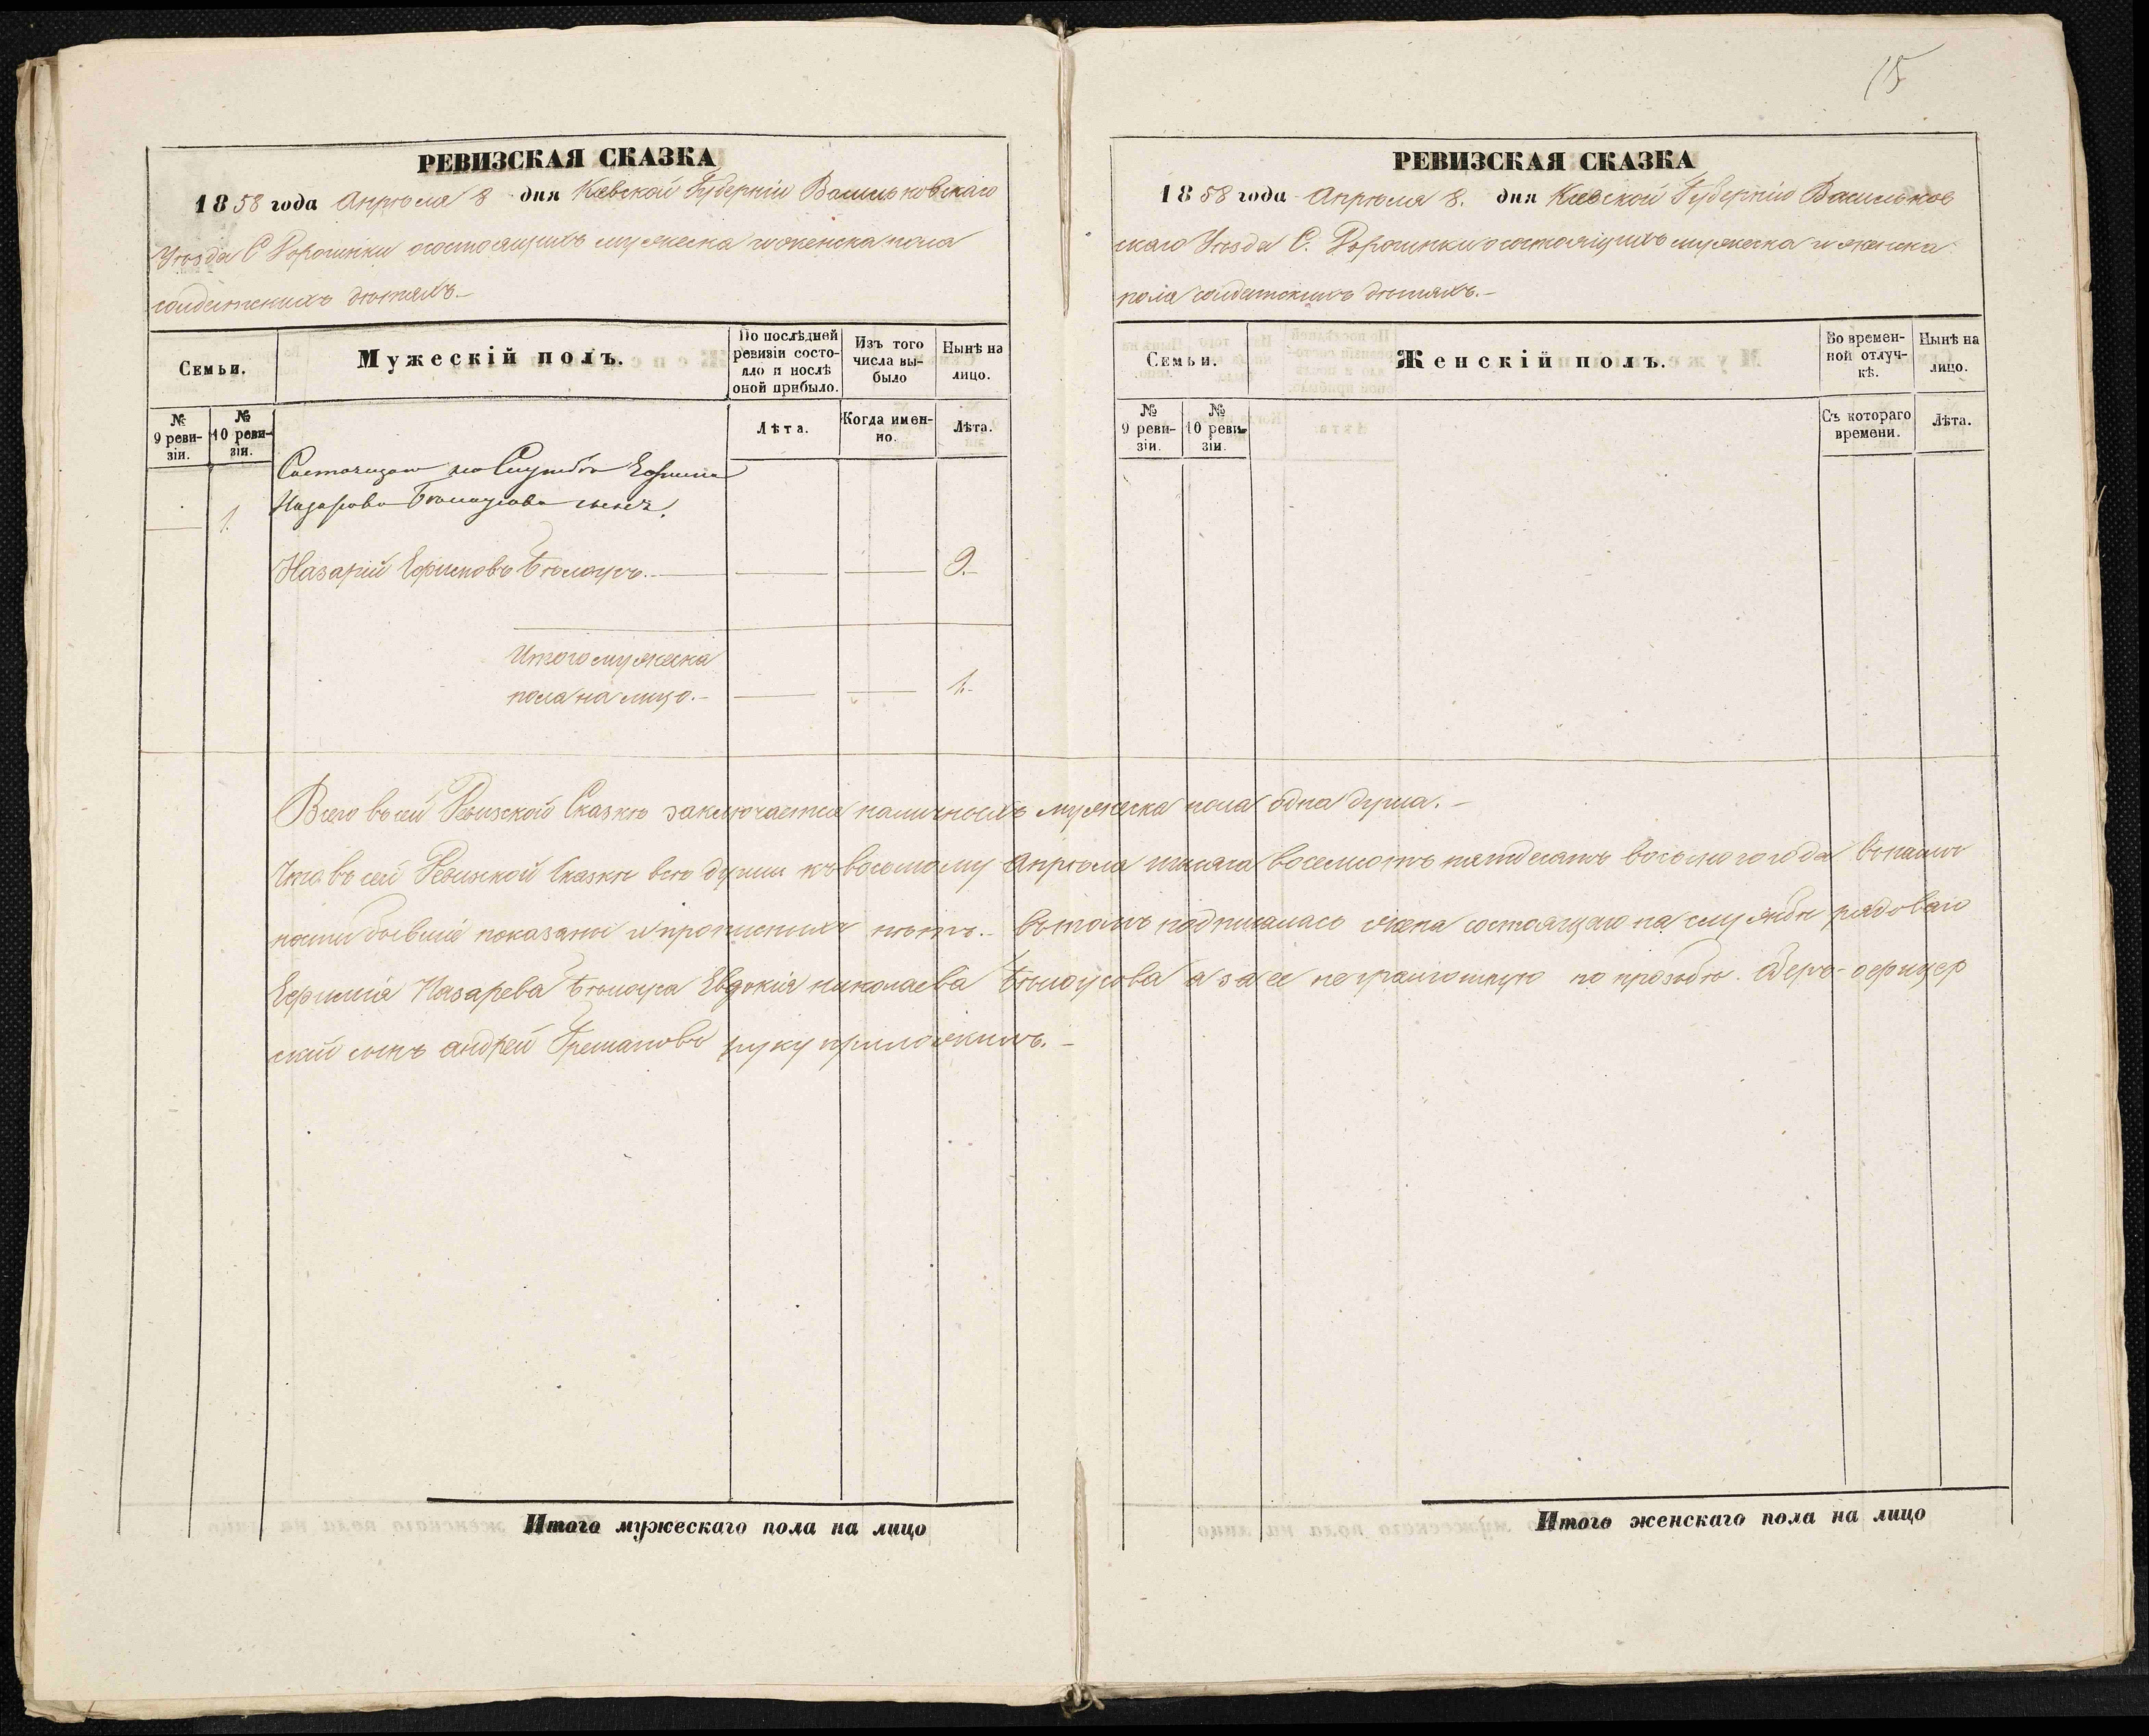 15
РЕВИЗСКАЯ СКАЗКА
1858 года Апрѣля 8 дня Кіевской Губерніи Васильковскаго
Уѣзда С Порошнки о состоящихъ мужеска и женска пола
солдатскихъ дѣтяхъ.-
Семьи.
Мужескій полъ.
По послѣдней ревизіи состояло и послѣ оной прибыло.
Изъ того числа выбыло
Нынѣ на лицо.
№ 9 ревизіи.
№ 10 ревизіи.
Лѣта.
Когда именно.
Лѣта.
Состоящаго на Службѣ Ефима
1. Назарова Бѣлоусова сынъ.
Назарій Ефимовъ Бѣлоусъ. 9.-
Итого мужеска
пола на лицо.- 1.-
РЕВИЗСКАЯ СКАЗКА
1858 года Апрѣля 8. дня Кіевской Губерніи Васильков
скаго Уѣзда С. Порошнки о состоящихъ мужеска и женска
пола солдатскихъ дѣтяхъ.-
Семьи.
Женскій полъ.
Во временной отлучкѣ.
Нынѣ на лицо.
№ 9 ревизіи.
№ 10 ревизіи.
Съ котораго времени.
Лѣта.
Всего въ сей Ревизской Сказкѣ заключается наличныхъ мужеска пола одна душа.-
Что въ сей Ревизской Сказкѣ всѣ души къ восьмому Апрѣля тысяча восемьсотъ пятдесятъ восьмого года въ налич
ности бывшіе показаны и прописныхъ нѣтъ.- въ томъ подписалась жена состоящаго на службѣ рядоваго
Ефимія Назарева Бѣлоуса Евдокія николаева Бѣлоусова а за ее неграмотную по прозьбѣ Оберъ-офицер
скій сынъ андрей руку приложилъ.-
Итого мужескаго пола на лицо
Итого женскаго пола на лицо